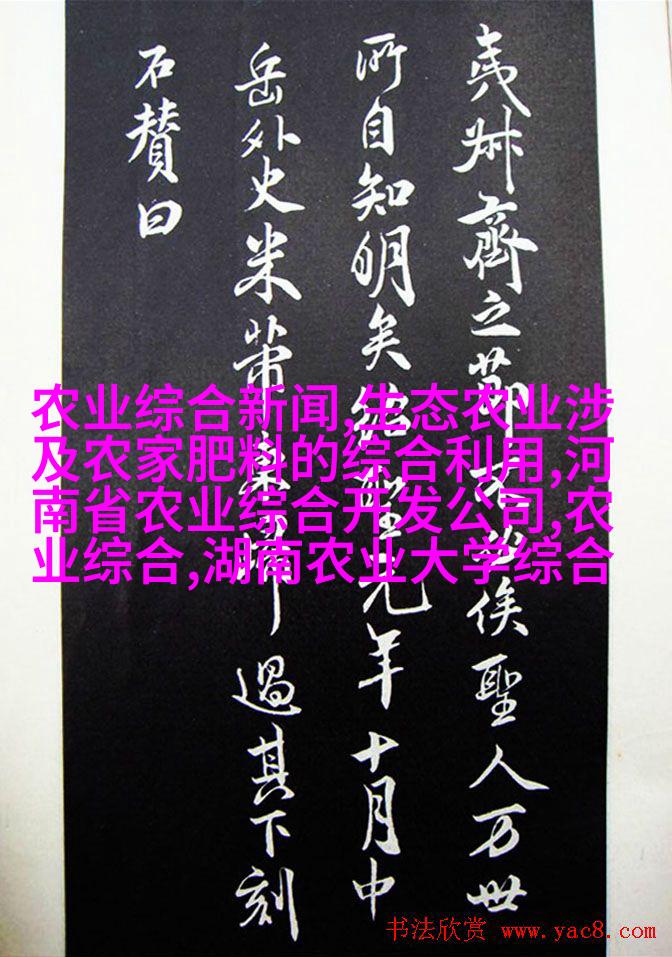 夷叔齊之節俟聖人万世
所自知明矣紹聖元年十月中
岳外史米芾東歸過其下刻
石贊曰
农业综合新闻,生态农业涉
及农家肥料的综合利用,河
南省农业综合开发公司,农
业综合,湖南农业大学综合
书法欣赏 www.yac8.com